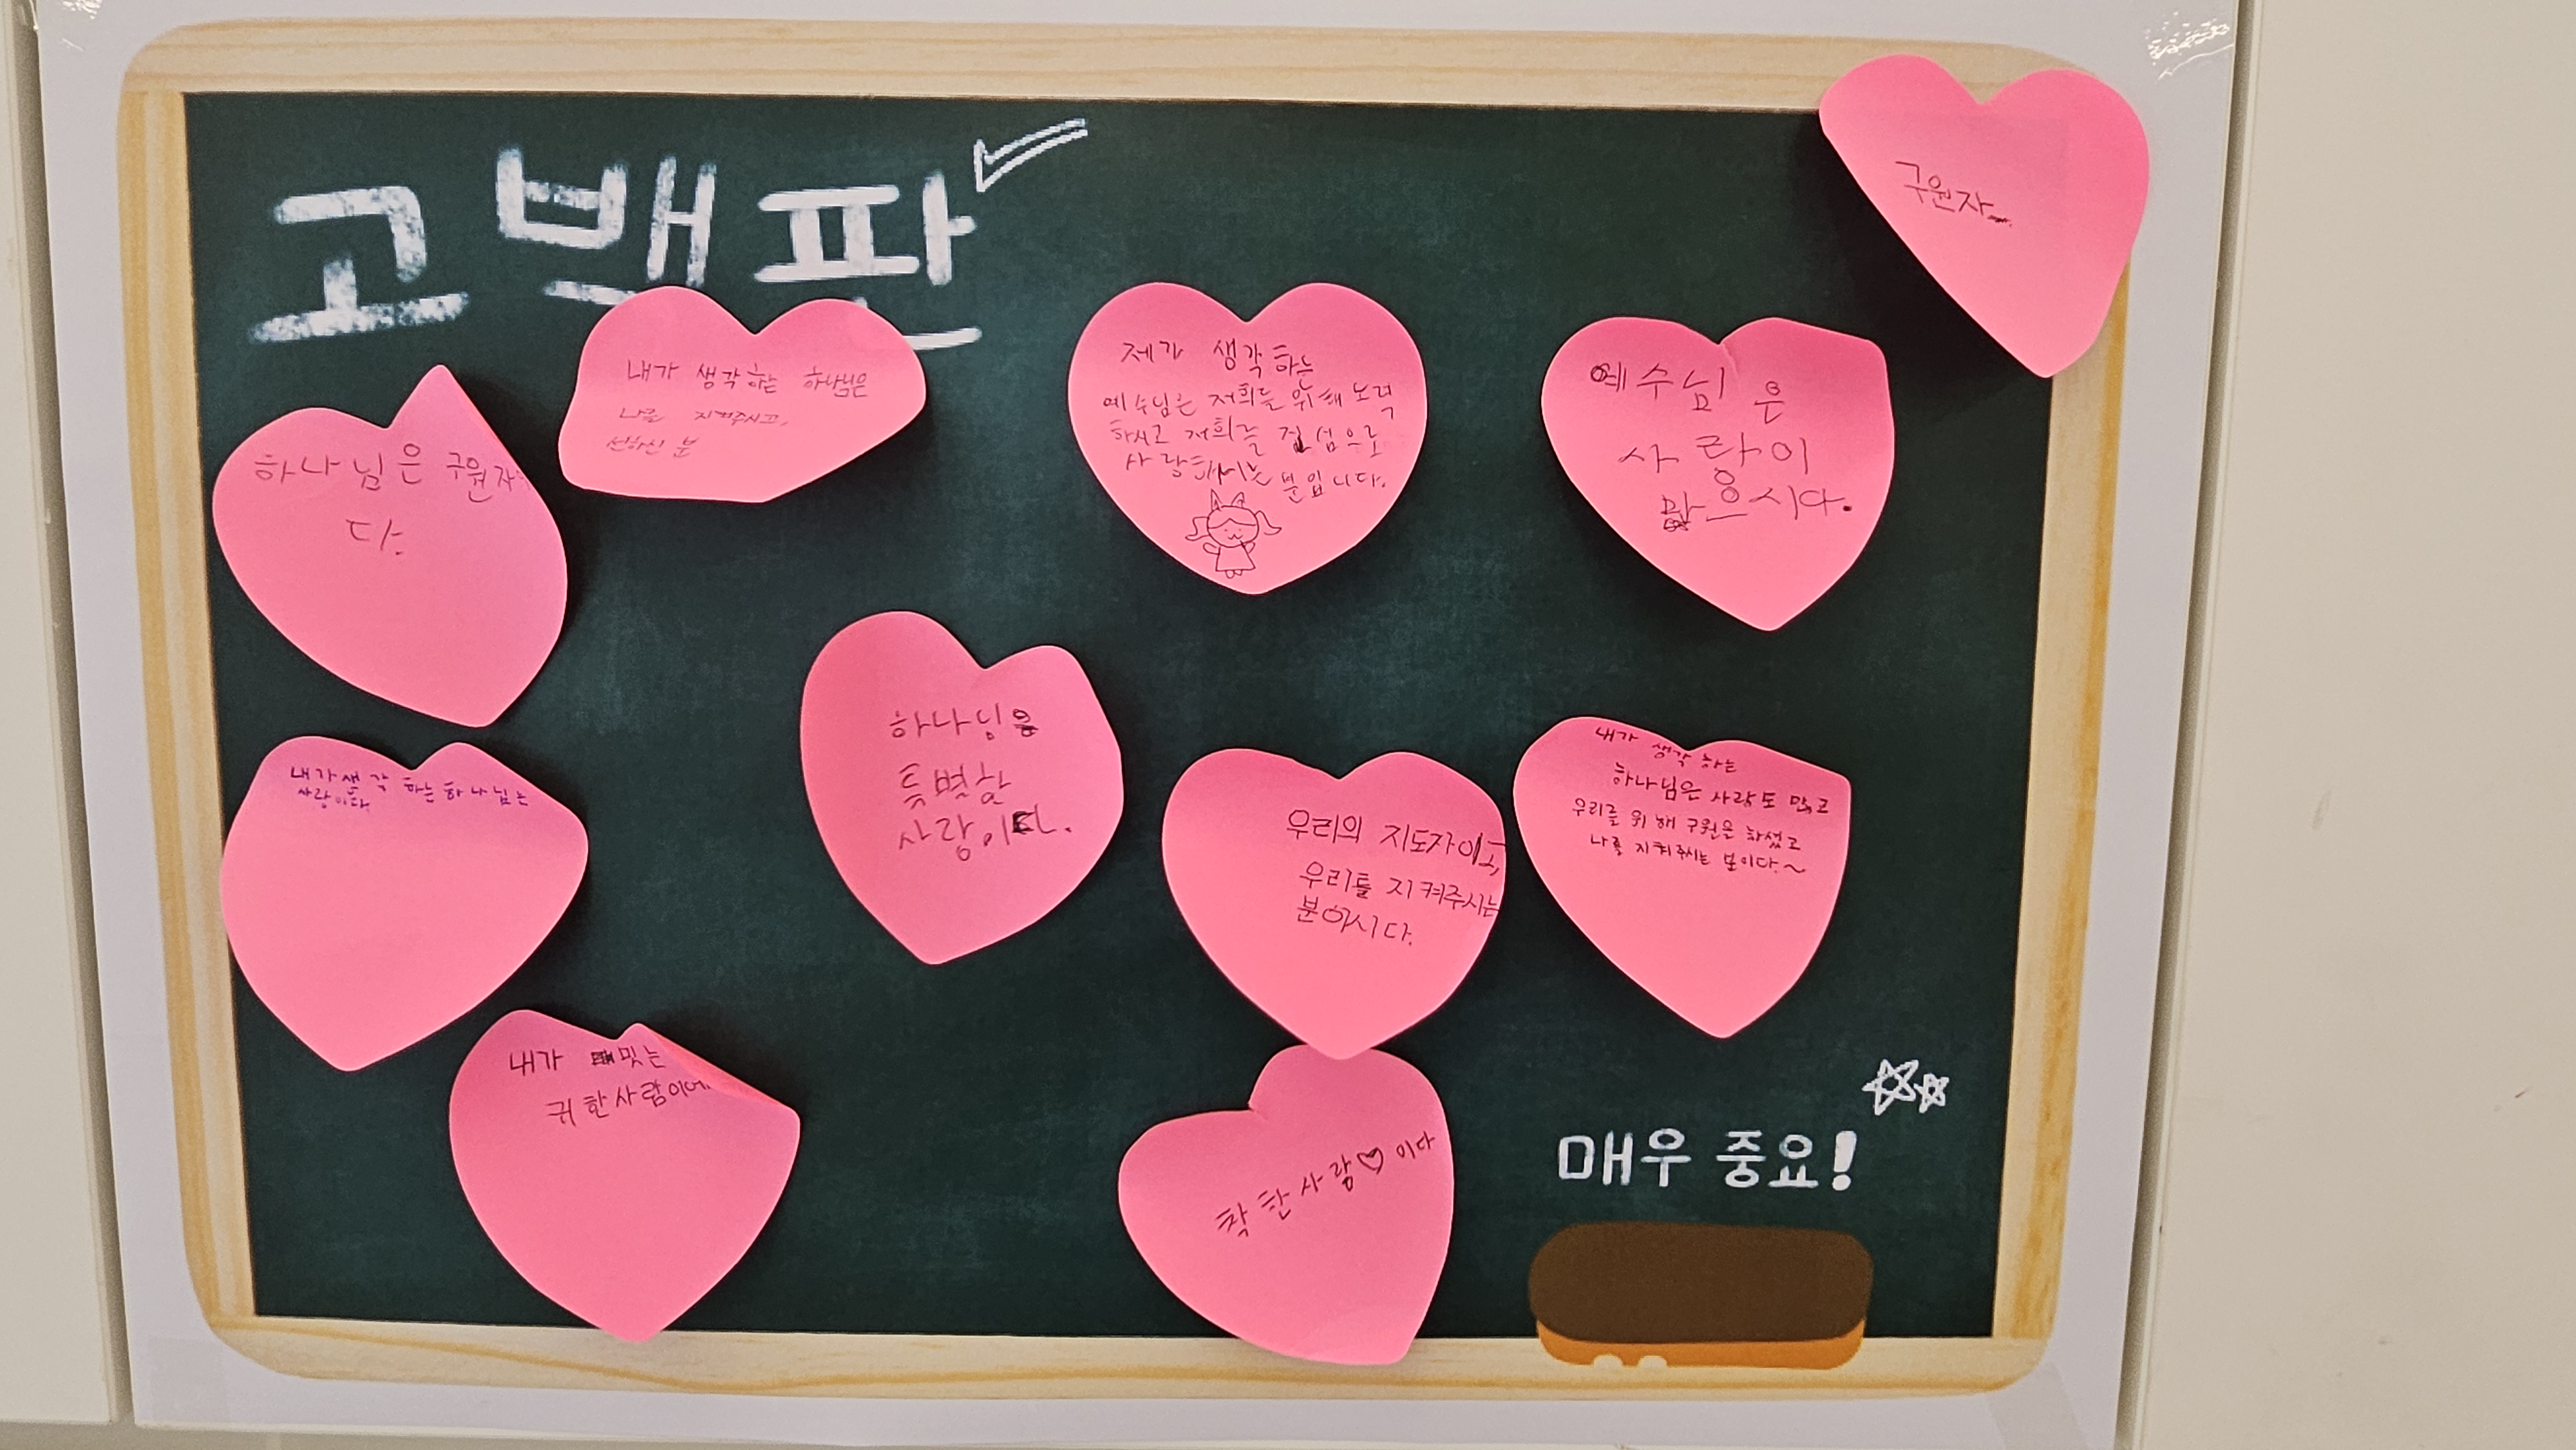 고백판
구원자
내가 생각하는 하나님은
나를 지켜주시고,
선하신 분
제가 생각하는
예수님은 저희를 위해 노력
하시고 저희를 진심으로
사랑하시는 분입니다.
예수님은
사랑이
많으시다.
하나님은 구원자
다.
하나님은
특별한
사랑이다.
내가 생각하는 하나님는
사랑이다
우리의 지도자이고,
우리를 지켜주시는
분이시다.
내가 생각하는
하나님은 사랑도 많고
우리를 위해 구원은 하셨고
나를 지켜주시는 분이다.~
내가 밋는
귀한사람이에
착한사람♡이다
매우 중요!